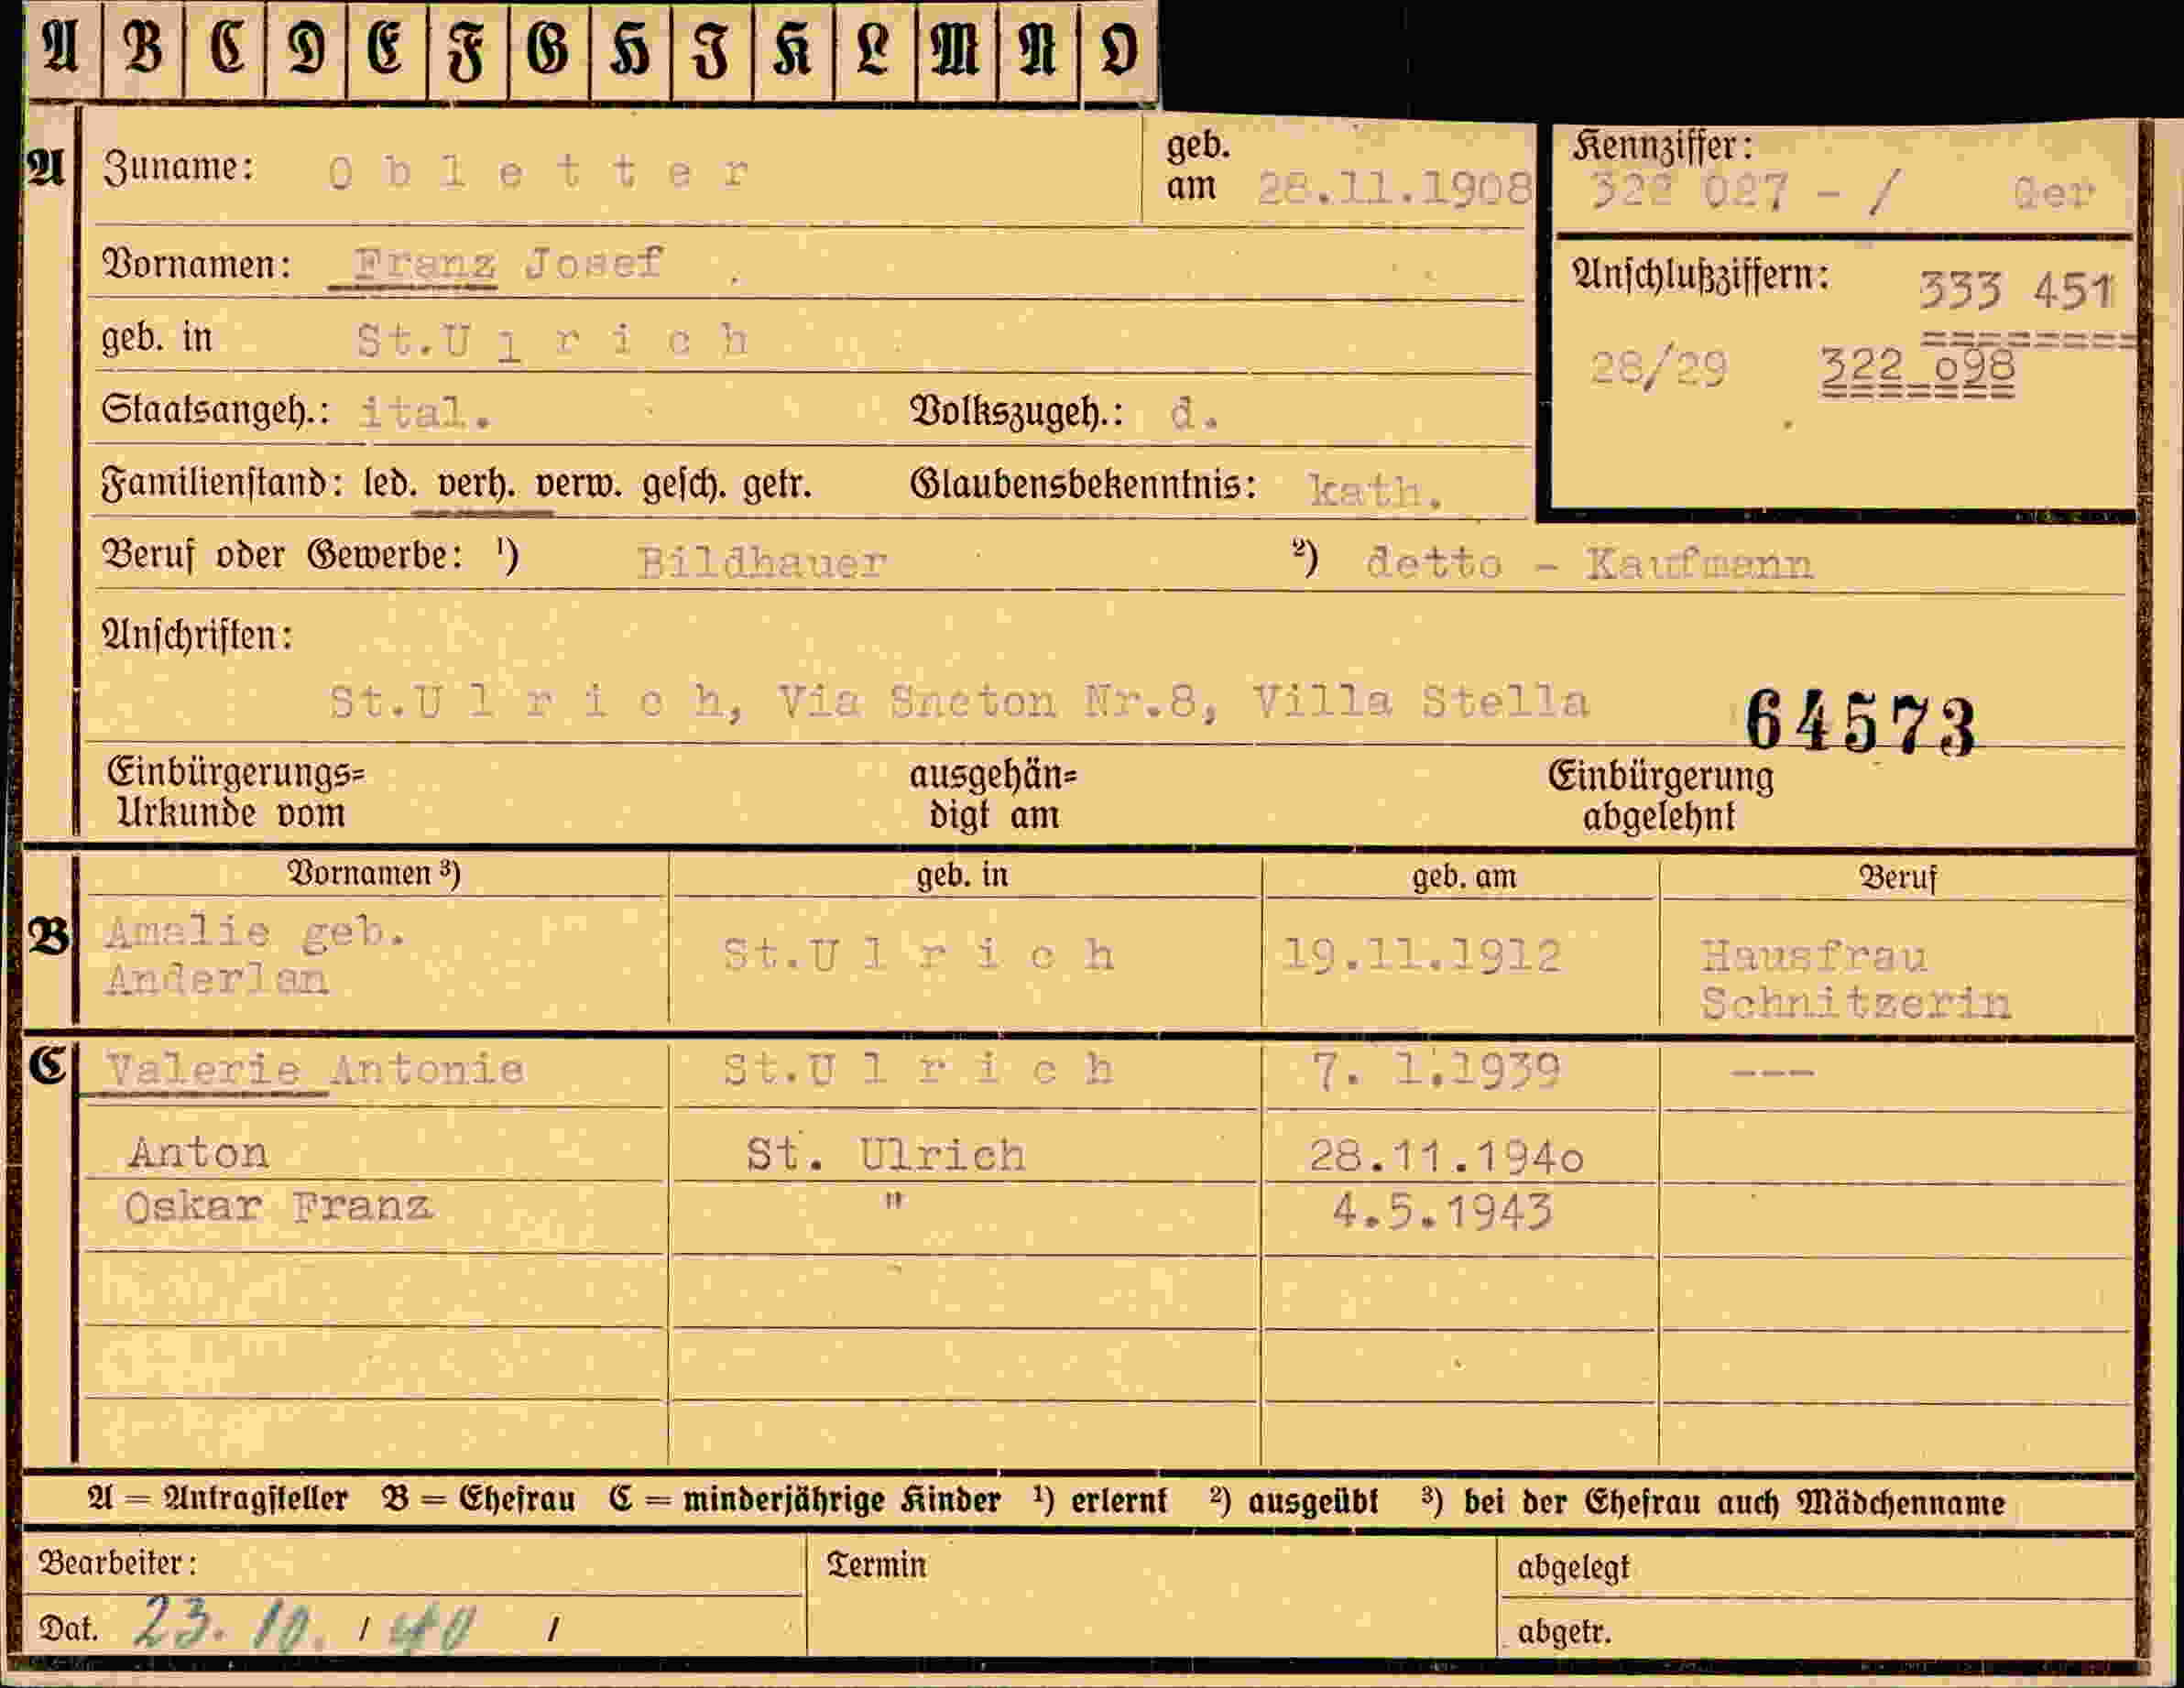 A B C D E F G H I K L M N O
A Zuname: Obletter geb. am 28.11.1908
Kennziffer: 322 027 - / Ger
Vornamen: Franz Josef
Anschlußziffern: 333 451
geb. in St.Ulrich
28/29 322 o98
Staatsangeh.: ital. Volkszugeh.: d.
Familienstand: led. verh. verw. gesch. getr. Glaubensbekenntnis: kath.
Beruf oder Gewerbe: ¹) Bildhauer ²) detto - Kaufmann
Anschriften:
St.Ulrich, Via Sneton Nr.8, Villa Stella 64573
Einbürgerungs= Urkunde vom ausgehän= digt am Einbürgerung abgelehnt
Vornamen ³) geb. in geb. am Beruf
B Amalie geb. Anderlan St.Ulrich 19.11.1912 Hausfrau Schnitzerin
C Valerie Antonie St.Ulrich 7. 1.1939 ---
Anton St. Ulrich 28.11.194o
Oskar Franz " 4.5.1943
A = Antragsteller B = Ehefrau C = minderjährige Kinder ¹) erlernt ²) ausgeübt ³) bei der Ehefrau auch Mädchenname
Bearbeiter: Termin abgelegt
Dat. 23. 10. / 40 / abgetr.